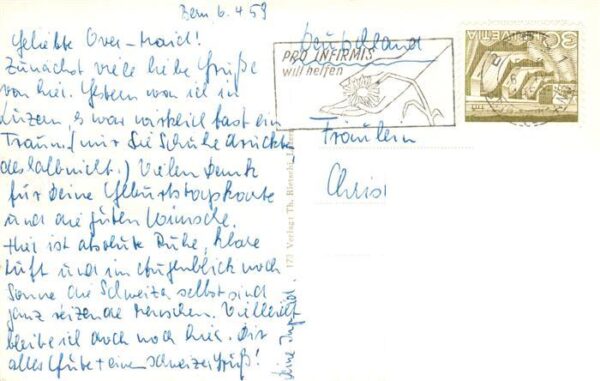 Bern. 6. 4 59
Geliebte Over-Maid!
Zunächst viele liebe Grüße
von hier. Gestern war ich in
Luzern, es war wirklich fast ein
Traum (nur die Schuhe drückten
deshalb nicht.) Vielen Dank
für Deine Geburtstagskarte
und die guten Wünsche.
Hier ist absolute Ruhe, klare
Luft und im Augenblick noch
Sonne die Schweizer selbst sind
ganz reizende Menschen. Vielleicht
bleibe ich doch noch hier. Dir
alles Gute + einen Schweizergruß!
Deine Ingrid.
173 Verlag: Th.
Deutschland
PRO INFIRMIS
will helfen
HELVETIA
30
Fräulein
Christ